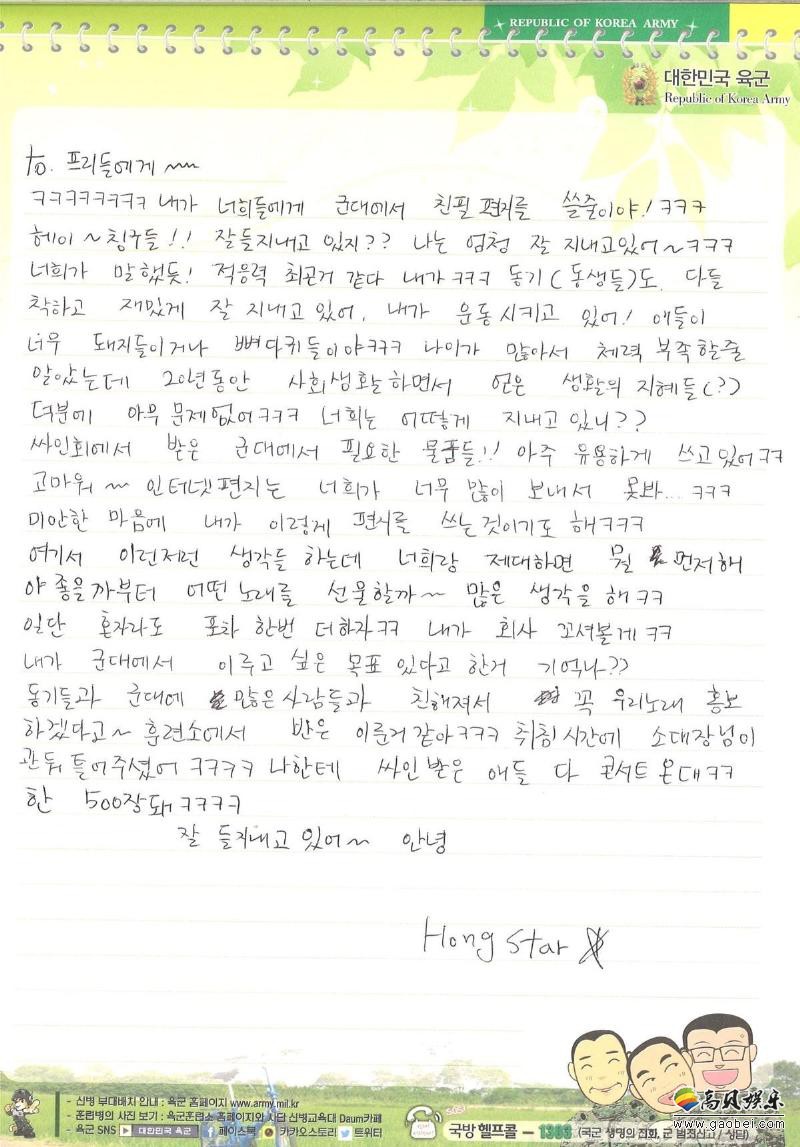 REPUBLIC OF KOREA ARMY
대한민국 육군
Republic of Korea Army
to. 프리들에게 ~~
ㅋㅋㅋㅋㅋㅋㅋㅋ 내가 너희들에게 군대에서 친필 편지를 쓸줄이야! ㅋㅋㅋ
헤이~ 칭구들!! 잘들지내고 있지?? 나는 엄청 잘 지내고있어~ㅋㅋㅋ
너희가 말했듯! 적응력 최곤거 같다 내가ㅋㅋㅋ 동기(동생들)도 다들
착하고 재밌게 잘 지내고 있어. 내가 운동시키고 있어! 애들이
너무 돼지들이거나 뼈다귀들이야ㅋㅋㅋ 나이가 많아서 체력 부족할줄
알았는데 20년동안 사회생활하면서 얻은 생활의 지혜들(?)
덕분에 아무 문제없어ㅋㅋㅋ 너희는 어떻게 지내고 있니??
싸인회에서 받은 군대에서 필요한 물품들!! 아주 유용하게 쓰고있어ㅋㅋ
고마워~ 인터넷편지는 너희가 너무 많이 보내서 못봐... ㅋㅋㅋ
미안한 마음에 내가 이렇게 편지를 쓰는것이기도 해ㅋㅋㅋ
여기서 이런저런 생각들 하는데 너희랑 제대하면 뭘 먼저해
야 좋을까부터 어떤노래를 선물할까~ 많은 생각을 해ㅋㅋ
일단 혼자라도 포차 한번 더하자ㅋㅋ 내가 회사 꼬셔볼게ㅋㅋ
내가 군대에서 이루고 싶은 목표 있다고 한거 기억나??
동기들과 군대에 많은사람들과 친해져서 꼭 우리노래 홍보
하겠다고~ 훈련소에서 반은 이룬거 같아ㅋㅋㅋ 취침시간에 소대장님이
관둬 틀어주셨어 ㅋㅋㅋㅋ 나한테 싸인받은 애들 다 콘서트 온대ㅋㅋ
한 500장돼ㅋㅋㅋㅋ
잘 들지내고 있어~ 안녕
Hong Star
- 신병 부대배치 안내 : 육군 홈페이지 www.army.mil.kr
- 훈련병의 사진 보기 : 육군훈련소 홈페이지와 사단 신병교육대 Daum카페
- 육군 SNS 대한민국 육군 페이스북 카카오스토리 트위터
국방헬프콜 - 1303 (국군 생명의 전화, 군 범죄신고 / 상담)
高贝娱乐
www.gaobei.com